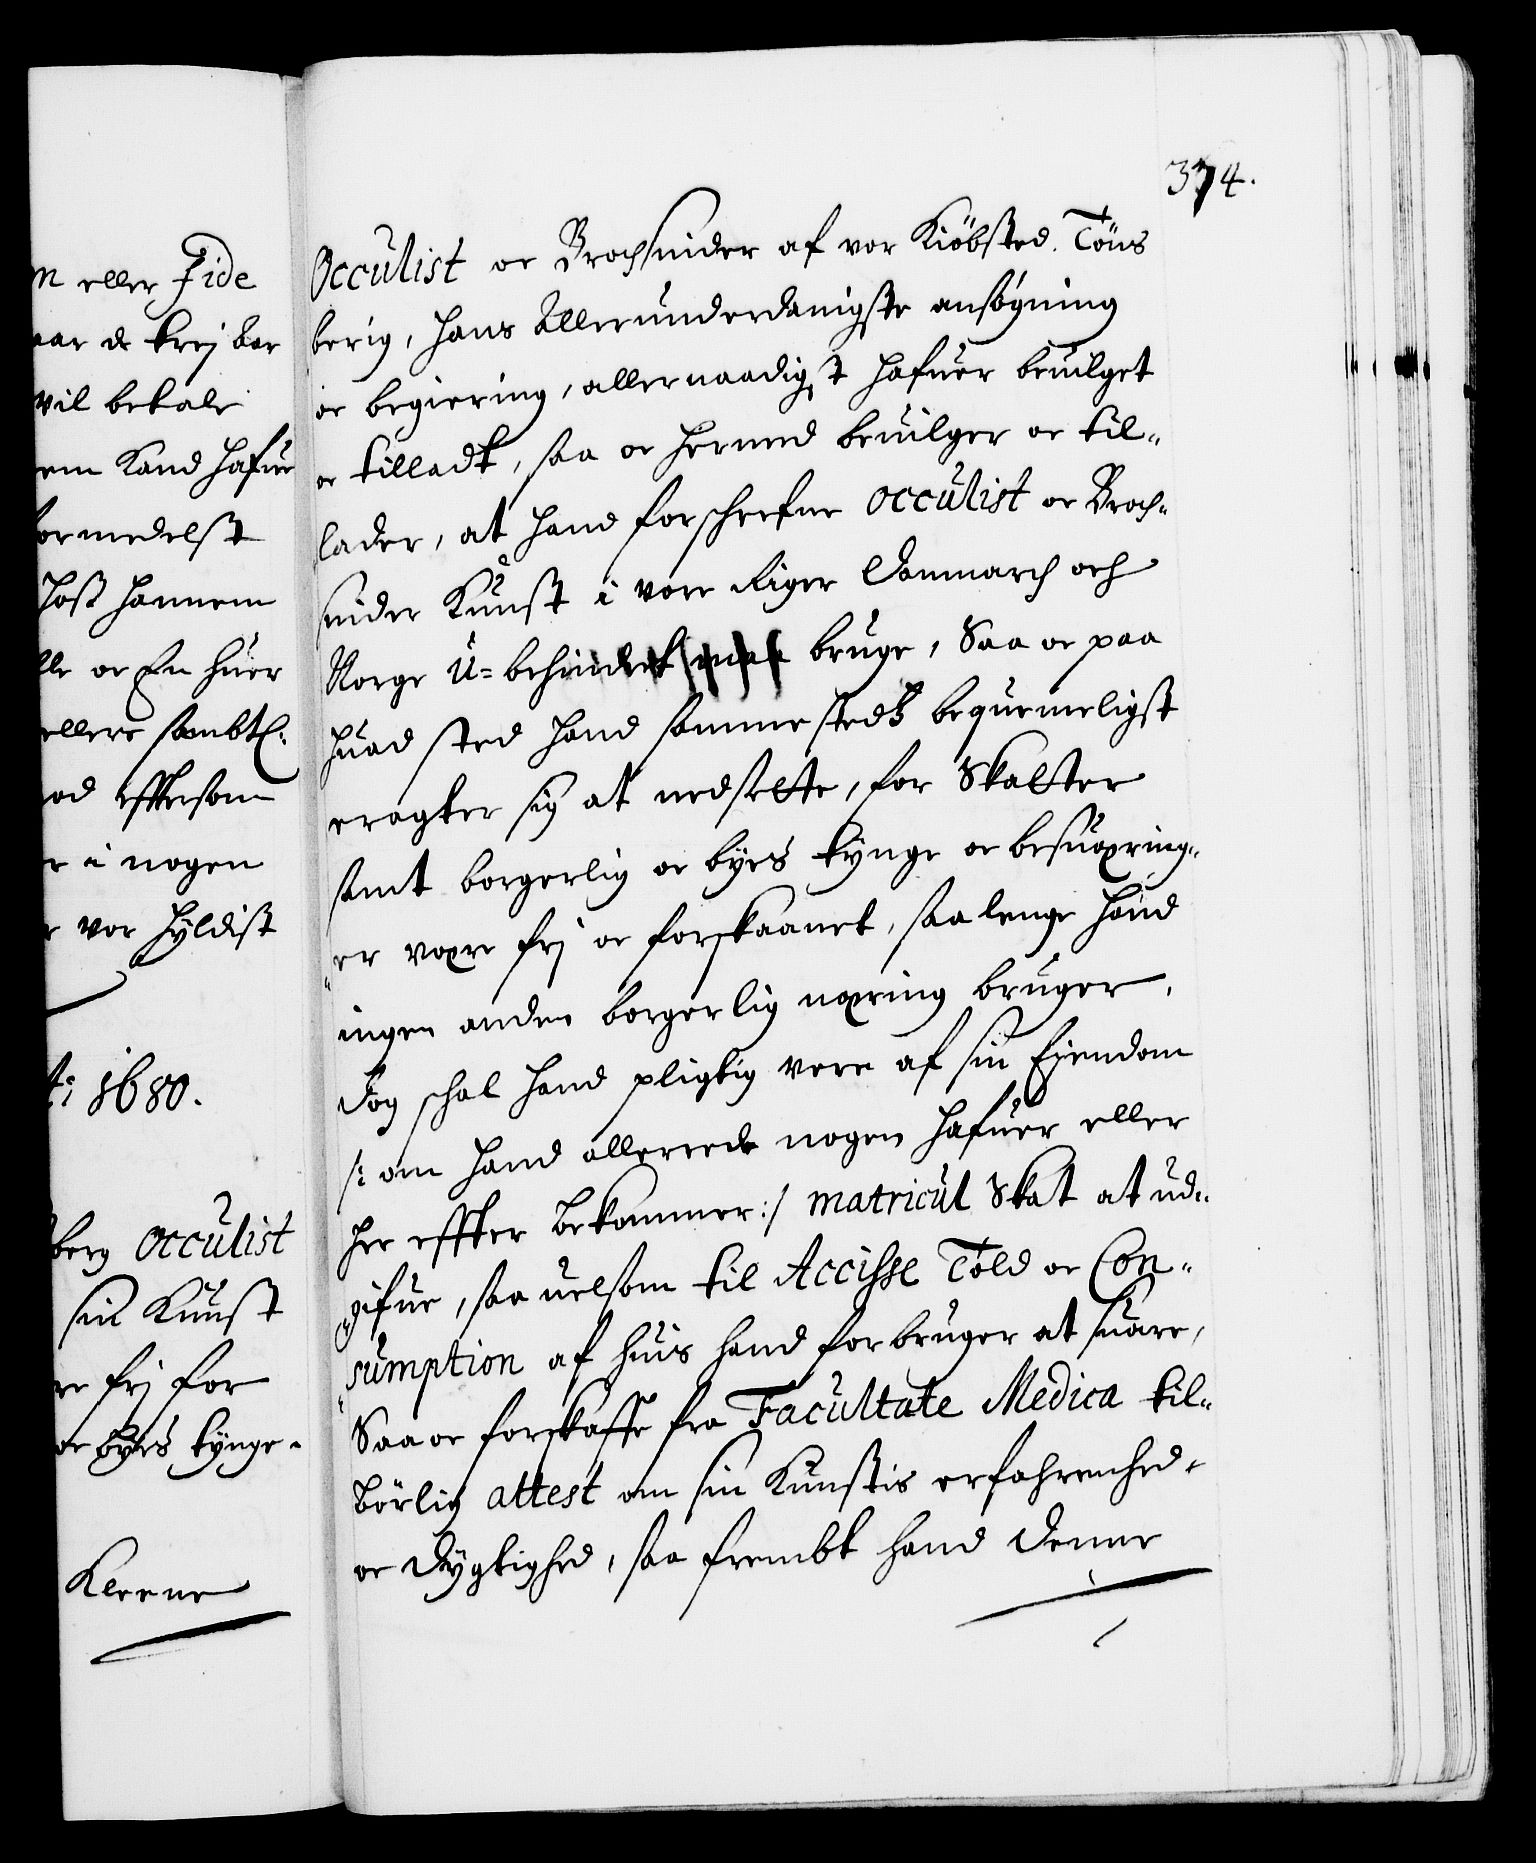 n eller Fide
aar de trej bør
vil betale
em Kand hafue
formedelst
hoß hannem
lle oc En huer
ellers sambtl:
od effttersom
r i nogen
r vor hyldist
ti 1680.
berg Occulist
sin Kunst
re frj for
oc byes tynge.
Kleene
374.
Occulist oc Brochsnider af vor Kiöbsted Töns
berig, hans Allerunderdanigste ansögning
oc begiering, allernaadigst hafuer beuilget
oc tilladt, saa oc hermed beuilger oc til-
lader, at hand forschrefne Occulist oc Broch-
snider Kunst i vore Riger Danmarch och
Norge U-behindret maa bruge, Saa oc paa
huad sted hand sammestedtz bequemeligst
eragter sig at nedsette, for Skatter
samt borgerlig oc byes tynge oc besuæring-
er være frj oc forskaanet, saa lenge hand
ingen anden borgerlig næring bruger,
Dog schal hand pligtig vere af sin Eiendom
/: om hand allerede nogen hafuer eller
her effter bekommer :/ matricul Skat at ud-
gifue, saauelsom til Accisse Told oc Con-
sumption af huis hand forbruger at suare,
Saa oc forskaffe fra Facultate Medica til-
börlig attest om sin Kunstis erfahrenhed
oc dygtighed, saa frembt hand denne